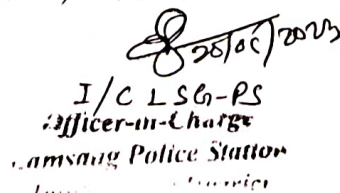 20/06/2023
I/C LSG-PS
Officer-in-Charge
Lamsang Police Station